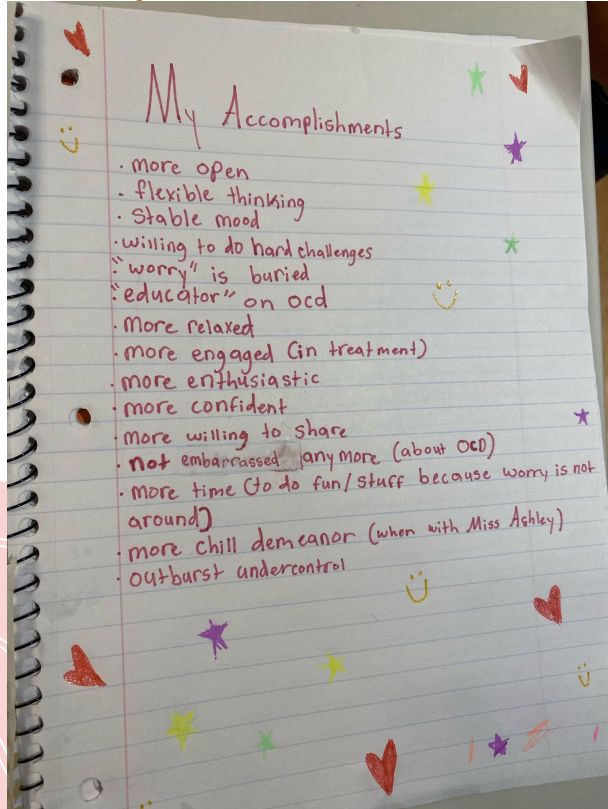 My Accomplishments
· more open
· flexible thinking
· Stable mood
· willing to do hard challenges
· "worry" is buried
· "educator" on ocd
· more relaxed
· more engaged (in treatment)
· more enthusiastic
· more confident
· more willing to share
· not embarrassed anymore (about OCD)
· more time (to do fun/stuff because worry is not
around)
· more chill demeanor (when with Miss Ashley)
· outburst undercontrol